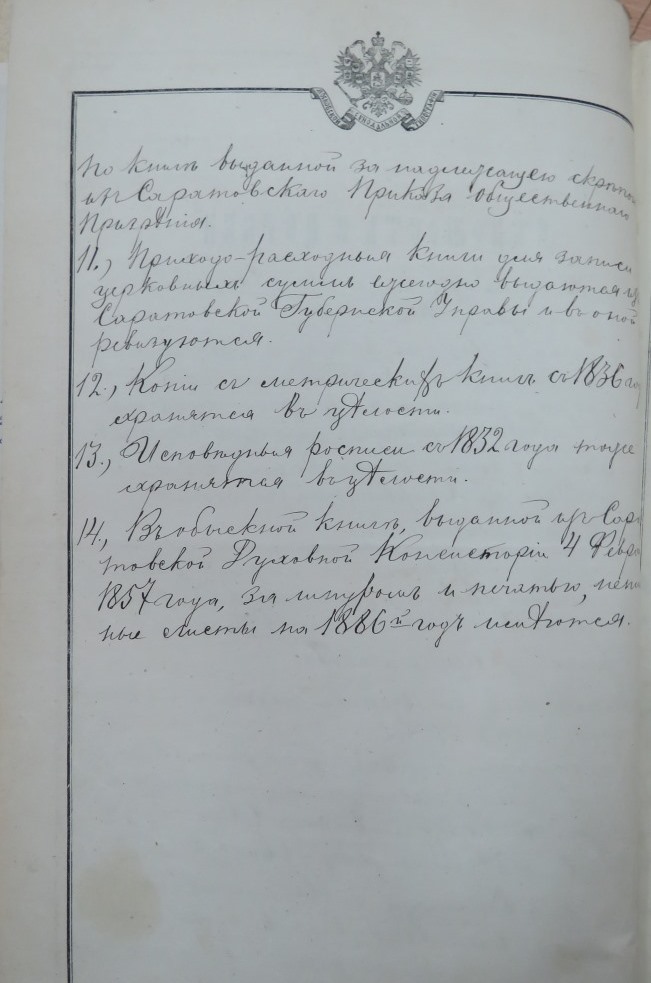 по книгѣ выданной за надлежащею скрѣпою
изъ Саратовскаго Приказа Общественнаго
Призрѣнія.
11., Приходо-расходныя книги для записи
церковныхъ суммъ ежегодно выдаются изъ
Саратовской Губернской Управы и въ оной
ревизуются.
12., Копіи съ метрическихъ книгъ съ 1836 го
хранятся въ цѣлости.
13., Исповѣдныя росписи съ 1832 года тоже
хранятся въ цѣлости.
14., Въ обыскной книгѣ, выданной изъ Сара
товской Духовной Консисторіи 4 Февра
1857 года, за шнуромъ и печатью,
ные листы на 1886й годъ имѣются.